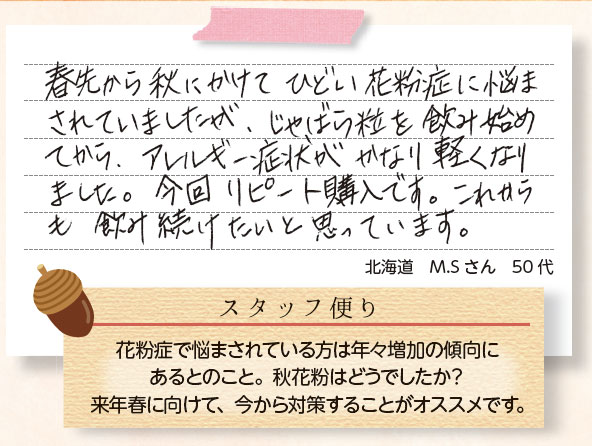 春先から秋にかけてひどい花粉症に悩ま
されていましたが、じゃばら粒を飲み始め
てから、アレルギー症状がかなり軽くなり
ました。今回リピート購入です。これから
も飲み続けたいと思っています。
北海道　M.Sさん　50代
スタッフ便り
花粉症で悩まされている方は年々増加の傾向に
あるとのこと。秋花粉はどうでしたか?
来年春に向けて、今から対策することがオススメです。